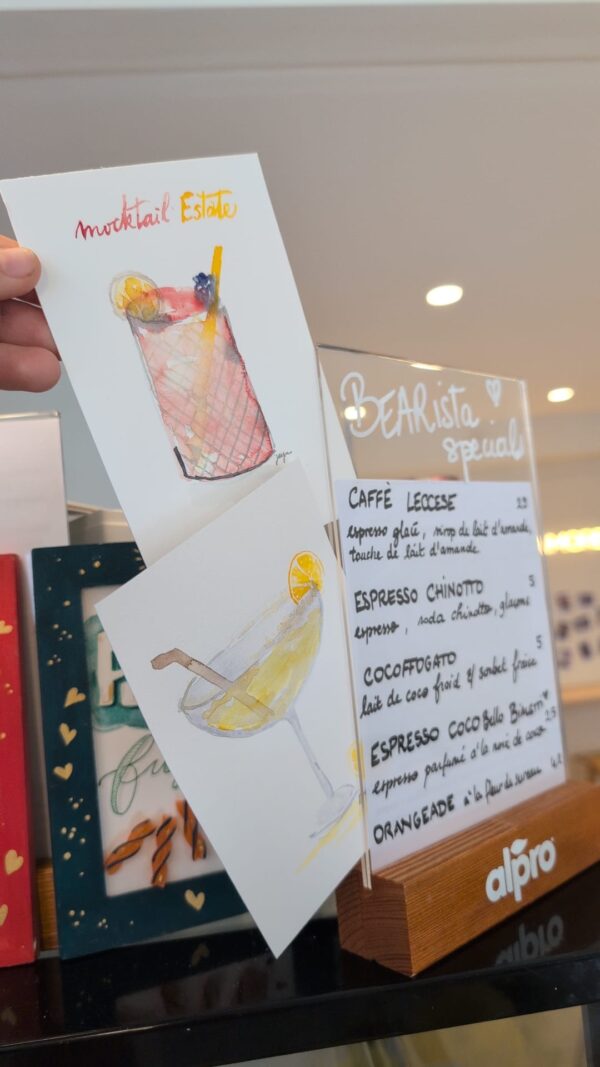 mocktail Estate
BEARista
special
CAFFÈ LECCESE
espresso glaçé, sirop de lait d'amande,
touche de lait d'amande
ESPRESSO CHINOTTO 5
espresso, soda chinotto, glaçons
COCOFFOGATO 5
lait de coco froid & sorbet fraise
ESPRESSO COCO Bello
espresso parfumé à la noix de coco 2,5
ORANGEADE à la fleur de sureau 4,2
alpro